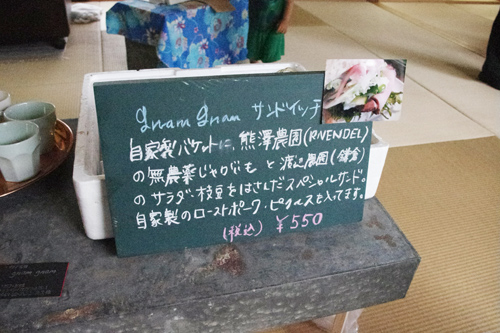 gnam gnam サンドイッチ
自家製バケットに、熊澤農園(RIVENDEL)
の無農薬じゃがいもと渡辺農園(鎌倉)
のサラダ・枝豆をはさんだスペシャルサンド。
自家製のローストポーク・ピクルスを入ってます。
(税込) ¥550